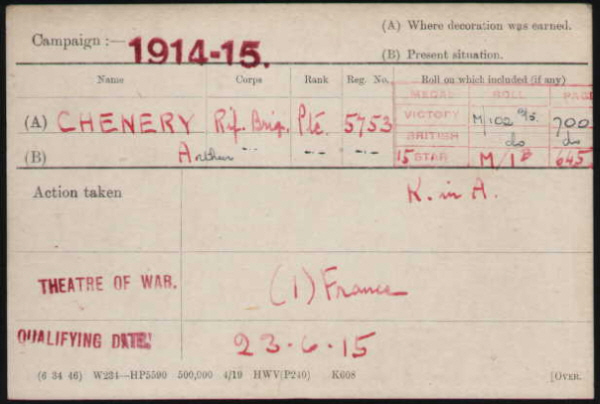 Campaign :— 1914-15.
(A) Where decoration was earned.
(B) Present situation.
Name Corps Rank Reg. No. Roll on which included (if any)
MEDAL ROLL PAGE
(A) CHENERY Rif. Brig. Pte. 5753 VICTORY M/102 700
BRITISH do do
(B) Arthur -"- -"- -"- 15 STAR M/1B 645
Action taken K. in A.
THEATRE OF WAR. (1) France
QUALIFYING DATE. 23.6.15
(6 34 46) W234—HP5590 500,000 4/19 HWV(P240) K608 [OVER.